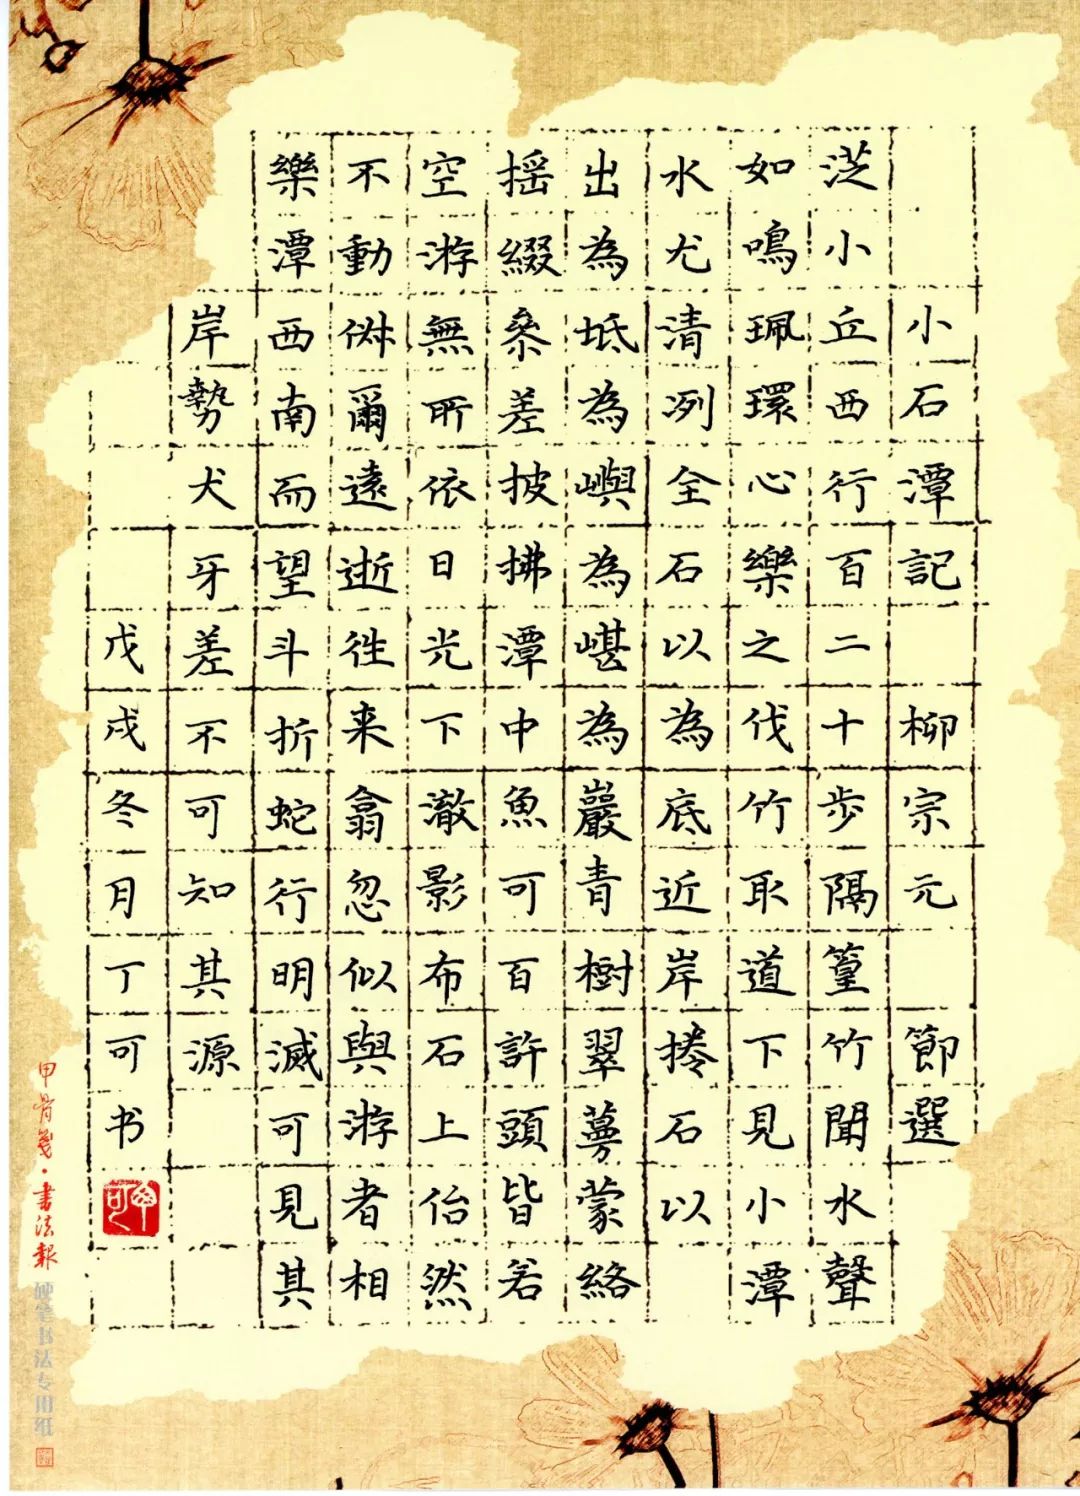 小石潭記 柳宗元 節選
小丘西行百二十步隔篁竹聞水聲
如鳴珮環心樂之伐竹取道下見小潭
水尤清冽全石以為底近岸捲石以
出為坻為嶼為嵁為巖青樹翠蔓蒙絡
揺綴叅差披拂潭中魚可百許頭皆若
空游無所依日光下澈影布石上佁然
不動俶爾遠逝往来翕忽似與游者相
樂潭西南而望斗折蛇行明滅可見其
岸勢犬牙差不可知其源
戊戌冬月丁可书
甲骨箋·書法報 硬笔书法专用纸